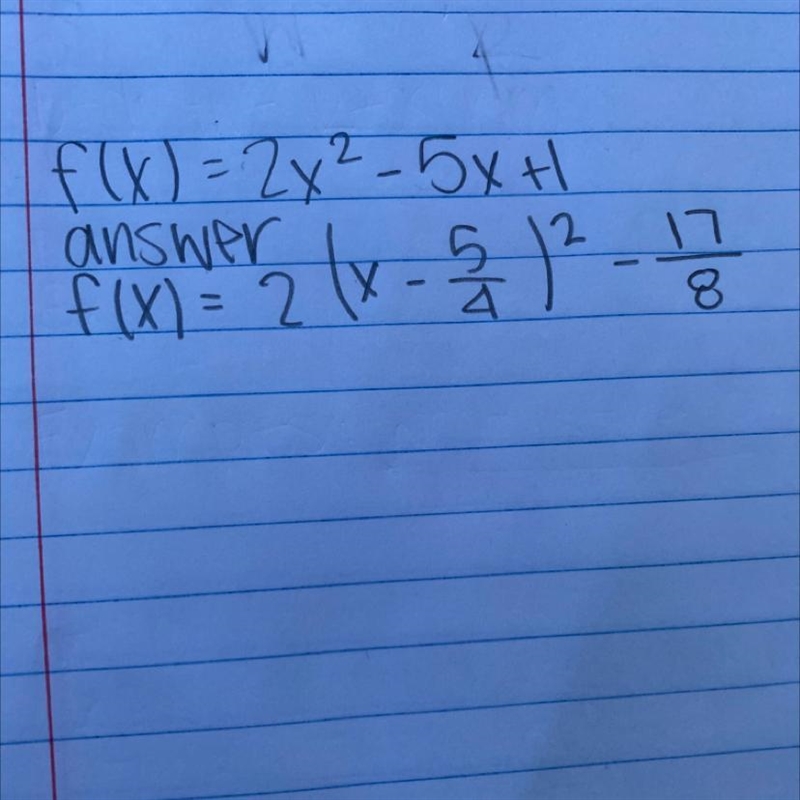 f(x) = 2x² - 5x + 1
answer
f(x) = 2 (x - 5/4)² - 17/8